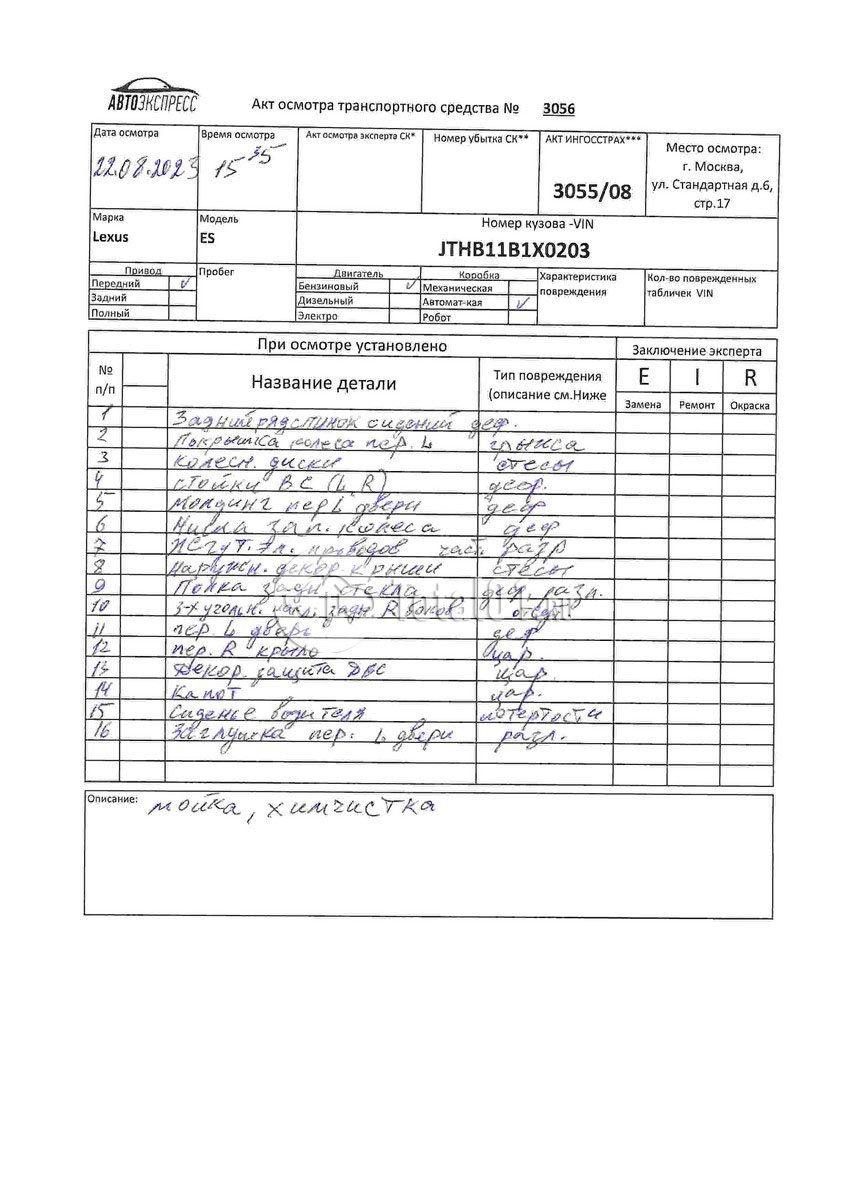 АВТОЭКСПРЕСС
Акт осмотра транспортного средства № 3056
Дата осмотра
22.08.2023
Время осмотра
15 35
Акт осмотра эксперта СК*
Номер убытка СК**
АКТ ИНГОССТРАХ***
3055/08
Место осмотра:
г. Москва,
ул. Стандартная д.6,
стр.17
Марка
Lexus
Модель
ES
Номер кузова -VIN
JTHB11B1X0203
Привод
Передний
Задний
Полный
Пробег
Двигатель
Бензиновый
Дизельный
Электро
Коробка
Механическая
Автомат-кая
Робот
Характеристика
повреждения
Кол-во поврежденных
табличек VIN
При осмотре установлено
Заключение эксперта
№
п/п
Название детали
Тип повреждения
(описание см.Ниже
E I R
Замена Ремонт Окраска
1 Задний ряд спинок сидений деф.
2 Покрышка колеса пер. L грыжа
3 Колесн. диски стесы
4 Стойки ВС (L R) деф.
5 Молдинг пер L двери деф
6 Ниша зап. колеса деф
7 Жгут эл. проводов част. разр
8 Наружн. декор крыши стесы
9 Полка задн стекла деф, разл.
10 3-х угольн. накл. задн. R боков.
11 пер. L дверь деф
12 пер. R крыло цар.
13 Декор. защита ДВС цар
14 Капот цар.
15 Сиденье водителя потертости
16 Заглушка пер. L двери разл.
Описание: мойка, химчистка